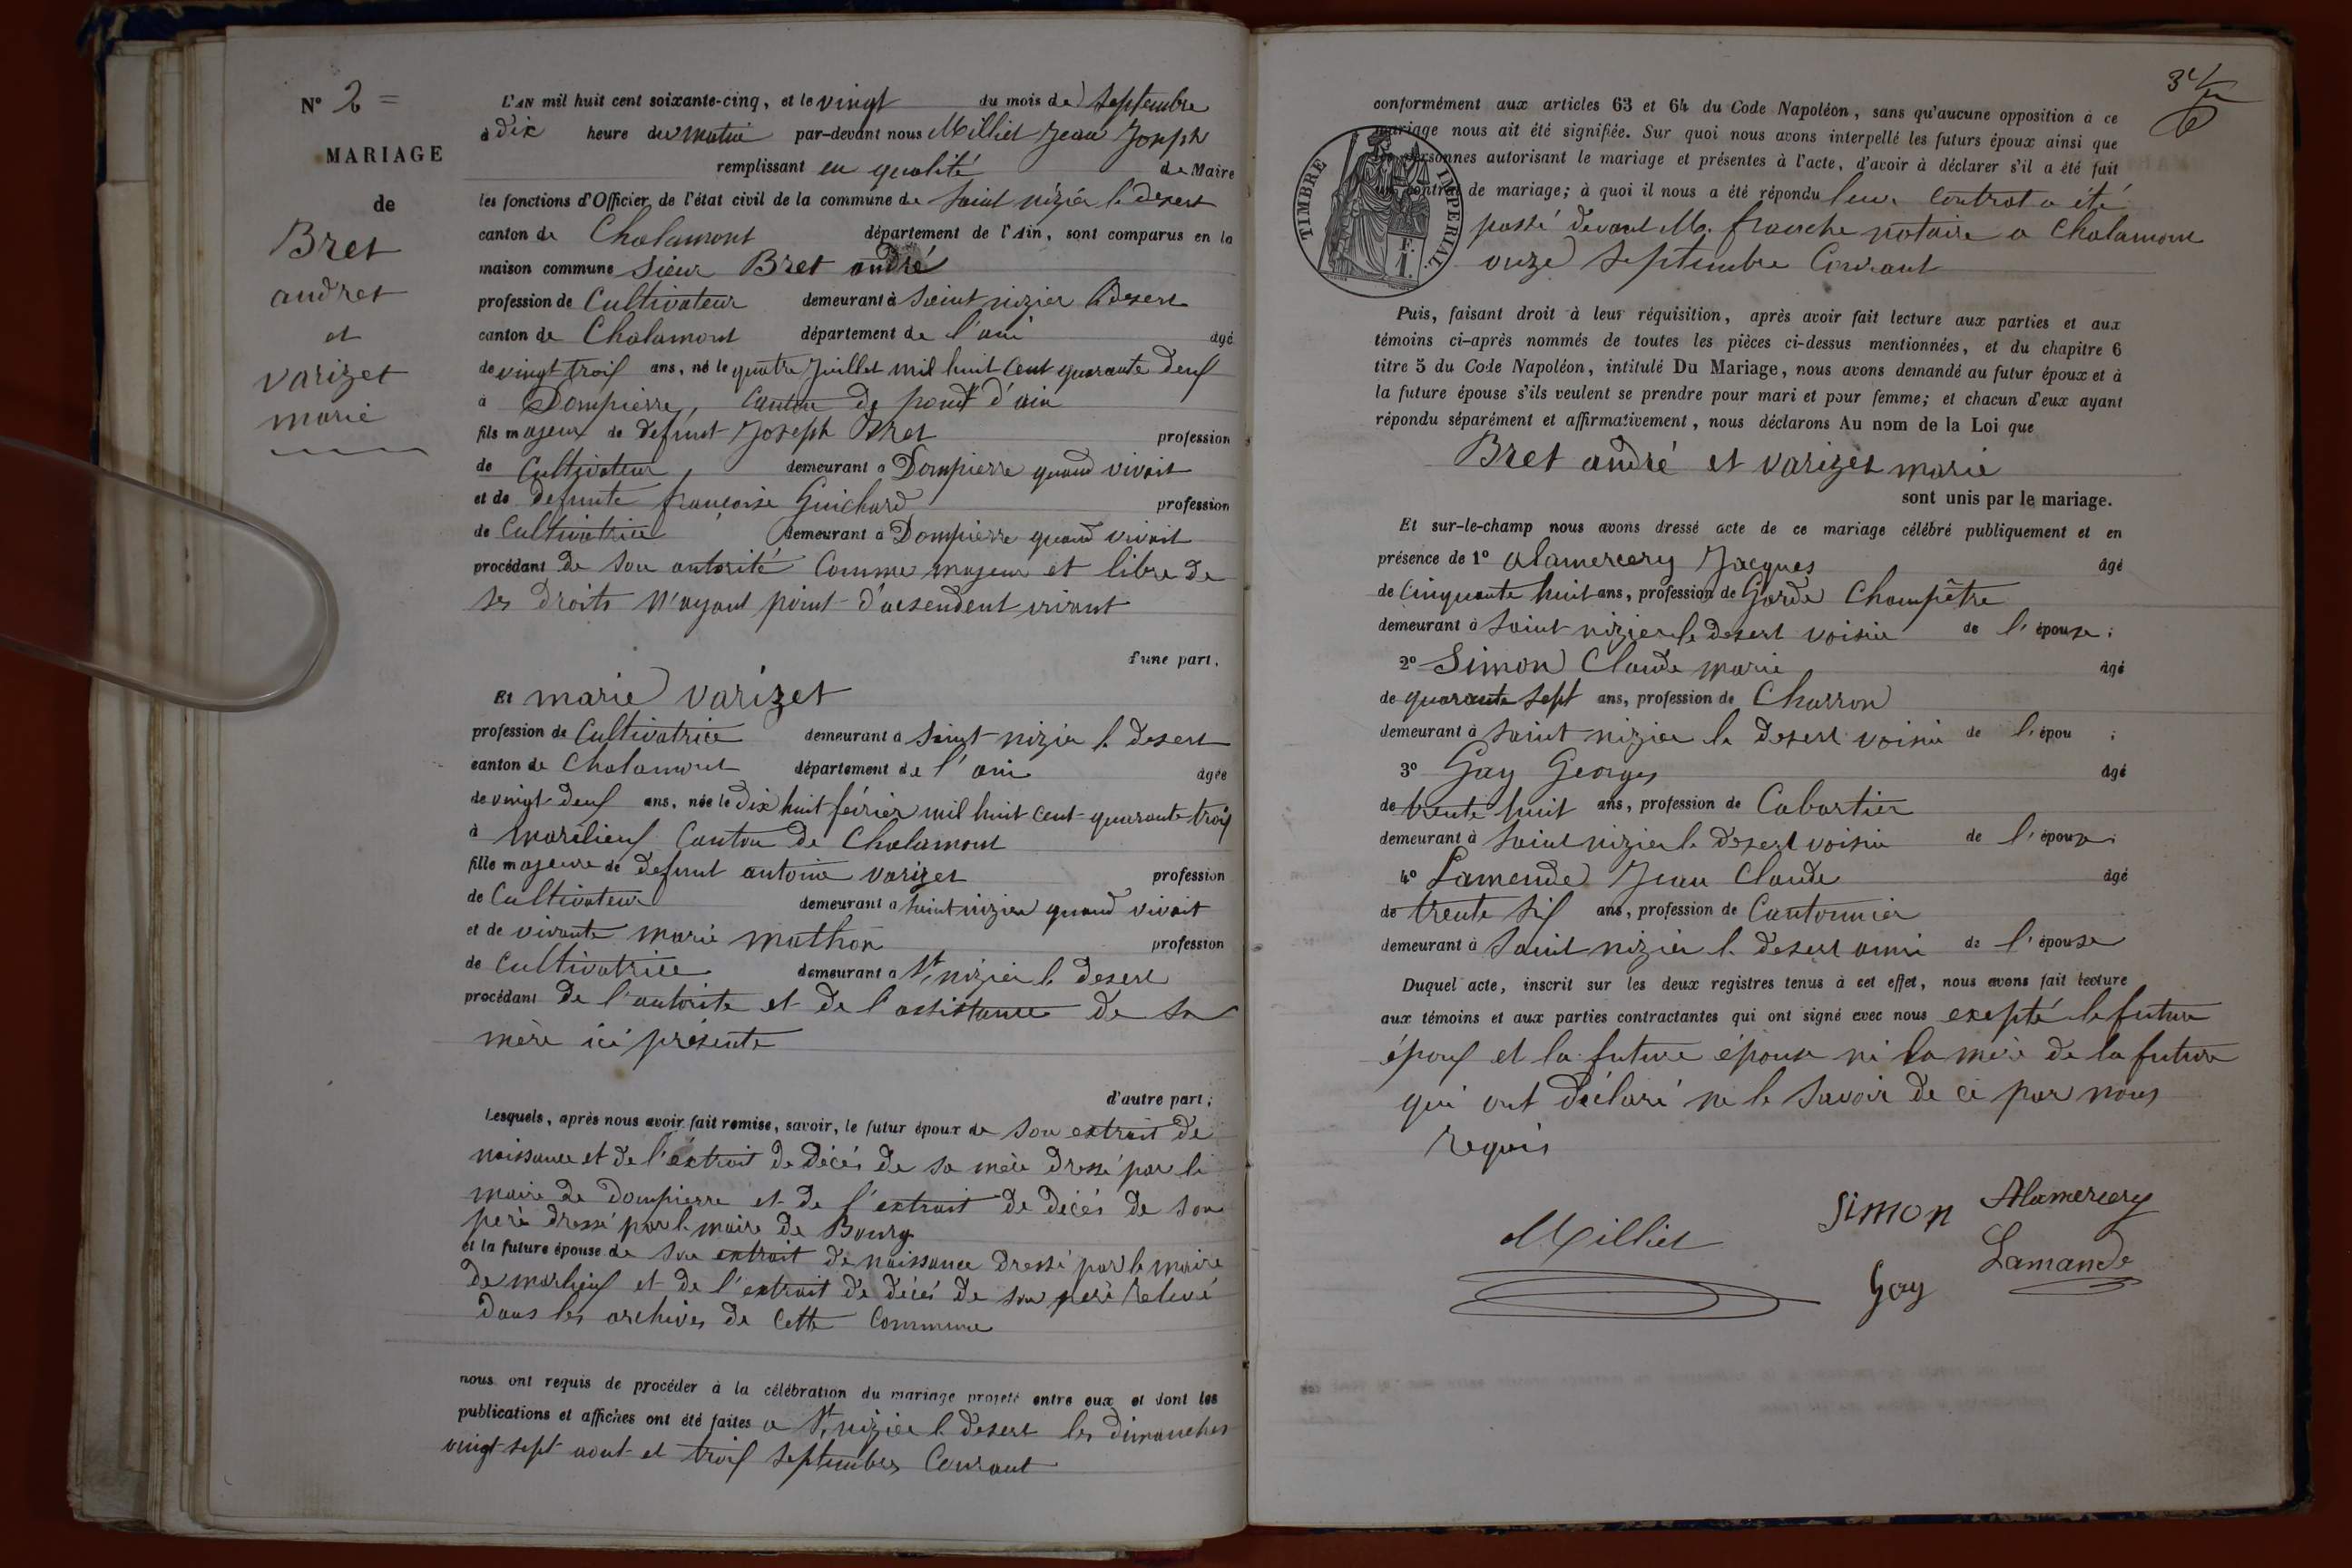 N° 2 =
MARIAGE
de
Bret
andret
et
varizet
marie
L'AN mil huit cent soixante-cinq, et le vingt du mois de Septembre
à dix heure du matin par-devant nous Milliet Jean Joseph
remplissant en qualité de Maire
les fonctions d'Officier de l'état civil de la commune de Saint nizier le desert
canton de Chalamont département de l'Ain, sont comparus en la
maison commune Sieur Bret andré
profession de Cultivateur demeurant à Saint nizier le desert
canton de Chalamont département de l'ain âgé
de vingt trois ans, né le quatre Juillet mil huit Cent quarante deux
à Dompierre, Canton de pont d'ain
fils majeur de defunt Joseph Bret profession
de Cultivateur, demeurant à Dompierre quand vivait
et de defunte francoise Guichard profession
de Cultivatrice demeurant à Dompierre quand vivait
procédant de son autorité Comme majeur et libre de
ses droits n'ayant point d'acsendent vivant
d'une part.
Et marie varizet
profession de Cultivatrice demeurant à Saint nizier le desert
canton de Chalamont département de l'ain âgée
de vingt deux ans, née le dix huit février mil huit cent quarante trois
à marelieux Canton de Chalamont
fille majeure de defunt antoine varizet profession
de Cultivateur demeurant à Saint nizier quand vivait
et de vivante marie mathon profession
de Cultivatrice demeurant à St nizier le desert
procédant de l'autorite et de l'assistance de sa
mère ici présente
d'autre part;
Lesquels, après nous avoir fait remise, savoir, le futur époux de son extrait de
naissance et de l'extrait de décés de sa mère dressé par le
maire de Dompierre et de l'extrait de décés de son
père dressé par le maire de Bourg
et la future épouse de son extrait de naissance dressé par le maire
de marlieux et de l'extrait de décés de son père relevé
dans les archives de Cette Commune
nous ont requis de procéder à la célébration du mariage projeté entre eux et dont les
publications et affiches ont été faites a St nizier le desert les dimanches
vingt sept aout et trois Septembre Courant
conformément aux articles 63 et 64 du Code Napoléon, sans qu'aucune opposition à ce
mariage nous ait été signifiée. Sur quoi nous avons interpellé les futurs époux ainsi que
personnes autorisant le mariage et présentes à l'acte, d'avoir à déclarer s'il a été fait
contrat de mariage; à quoi il nous a été répondu leur Contrat a été
passé devant Me. franche notaire a Chalamont
onze Septembre Courant
TIMBRE IMPERIAL.
Puis, faisant droit à leur réquisition, après avoir fait lecture aux parties et aux
témoins ci-après nommés de toutes les pièces ci-dessus mentionnées, et du chapitre 6
titre 5 du Code Napoléon, intitulé Du Mariage, nous avons demandé au futur époux et à
la future épouse s'ils veulent se prendre pour mari et pour femme; et chacun d'eux ayant
répondu séparément et affirmativement, nous déclarons Au nom de la Loi que
Bret andré et varizet marie
sont unis par le mariage.
Et sur-le-champ nous avons dressé acte de ce mariage célébré publiquement et en
présence de 1° alamercery Jacques âgé
de Cinquante huit ans, profession de Garde Champêtre
demeurant à Saint nizier le desert voisin de l'épouse;
2° Simon Claude marie âgé
de quarante sept ans, profession de Charron
demeurant à Saint nizier le desert voisin de l'épou ;
3° Gay Georges âgé
de trente huit ans, profession de Cabartier
demeurant à Saint nizier le desert voisin de l'épouse;
4° Lamende Jean Claude âgé
de trente six ans, profession de Cantonnier
demeurant à Saint nizier le desert ami de l'épouse
Duquel acte, inscrit sur les deux registres tenus à cet effet, nous avons fait lecture
aux témoins et aux parties contractantes qui ont signé avec nous exepté le future
époux et la future épouse ni la mère de la future
qui ont déclaré ne le Savoir de ce par nous
requis
Milliet
Simon
Alamercery
Gay
Lamande